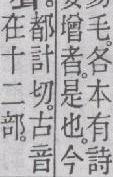 毛。各本有詩
增者。是也。今
都計切。古音
在十二部。